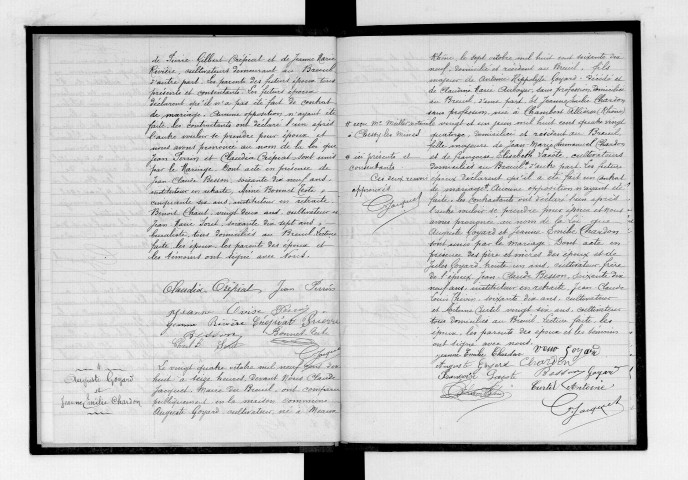 de Pierre Gilbert Crépiat et de Jeanne Marie
Rivière, cultivateurs demeurant au Breuil
d'autre part. Les parents des futurs époux tous
présents et consentants. Les futurs époux
déclarent qu'il n'a pas été fait de contrat
de mariage. Aucune opposition n'ayant été
faite, les contractants ont déclaré l'un après
l'autre vouloir se prendre pour époux et
nous avons prononcé au nom de la loi que
Jean et Claudia Crépiat sont unis
par le Mariage. Dont acte en présence de
Jean Claude Besson, soixante dix neuf ans
instituteur en retraite, Aimé Bonnet
cinquante six ans, instituteur en retraite
Benoit, vingt deux ans, cultivateur et
Jean Marie, soixante dix sept ans
tous domiciliés au Breuil. Lecture
faite les époux, les parents des époux et
les témoins ont signé avec Nous.
Claudia Crépiat Jean
Rivière Crépiat
Besson Bonnet
Jacquet
Auguste Goyard
et
Jeanne Emilie Chardon
Le vingt quatre octobre mil neuf cent
huit à seize heures, devant Nous Claude
Jacquet, Maire du Breuil, ont comparu
publiquement en la maison commune
Auguste Goyard, cultivateur, né à
Rhône, le sept octobre mil huit cent soixante dix
neuf, domicilié et résidant au Breuil, fils
majeur de Antoine Hippolyte Goyard décédé et
de Claudine Marie, sans profession, domiciliée
au Breuil, d'une part. Et Jeanne Emilie Chardon
sans profession, née à Chambost Allières (Rhône)
le vingt et un juin mil huit cent quatre vingt
quatorze, domiciliée et résidant au Breuil
fille majeure de Jean Marie Emmanuel Chardon
et de Françoise Elisabeth, cultivateurs
domiciliés au Breuil, d'autre part. Les futurs
époux déclarent qu'il a été fait un contrat
de mariage. Aucune opposition n'ayant été
faite, les contractants ont déclaré l'un après
l'autre vouloir se prendre pour époux et nous
avons prononcé au nom de la loi que
Auguste Goyard et Jeanne Emilie Chardon
sont unis par le mariage. Dont acte en
présence des père et mères des époux et de
Goyard, trente un ans, cultivateur, frère
de l'époux, Jean Claude Besson, soixante dix
neuf ans, instituteur en retraite, Jean Claude
Louis, soixante dix ans, cultivateur
et Antoine Curtet, vingt six ans, cultivateur
tous domiciliés au Breuil. Lecture faite, les
époux, les parents des époux et les témoins
ont signé avec nous.
Jeanne Emilie Chardon Veuve Goyard
Auguste Goyard Chardon
Besson Goyard
Curtet Antoine
Jacquet
à Chessy les Mines
présents et
consentants
Ces deux renvois
approuvés
Jacquet